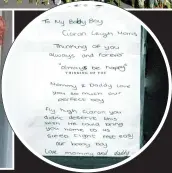 To My Baby Boy
Ciaran Leigh Morris
Thinking of you
always and forever
"always be happy"
THINKING OF YOU
Mommy & Daddy love
you so much our
perfect boy
Fly high Ciaran you
didnt deserve this
wish we could bring
you home to us
Sleep tight
our baby boy
Love mommy and daddy